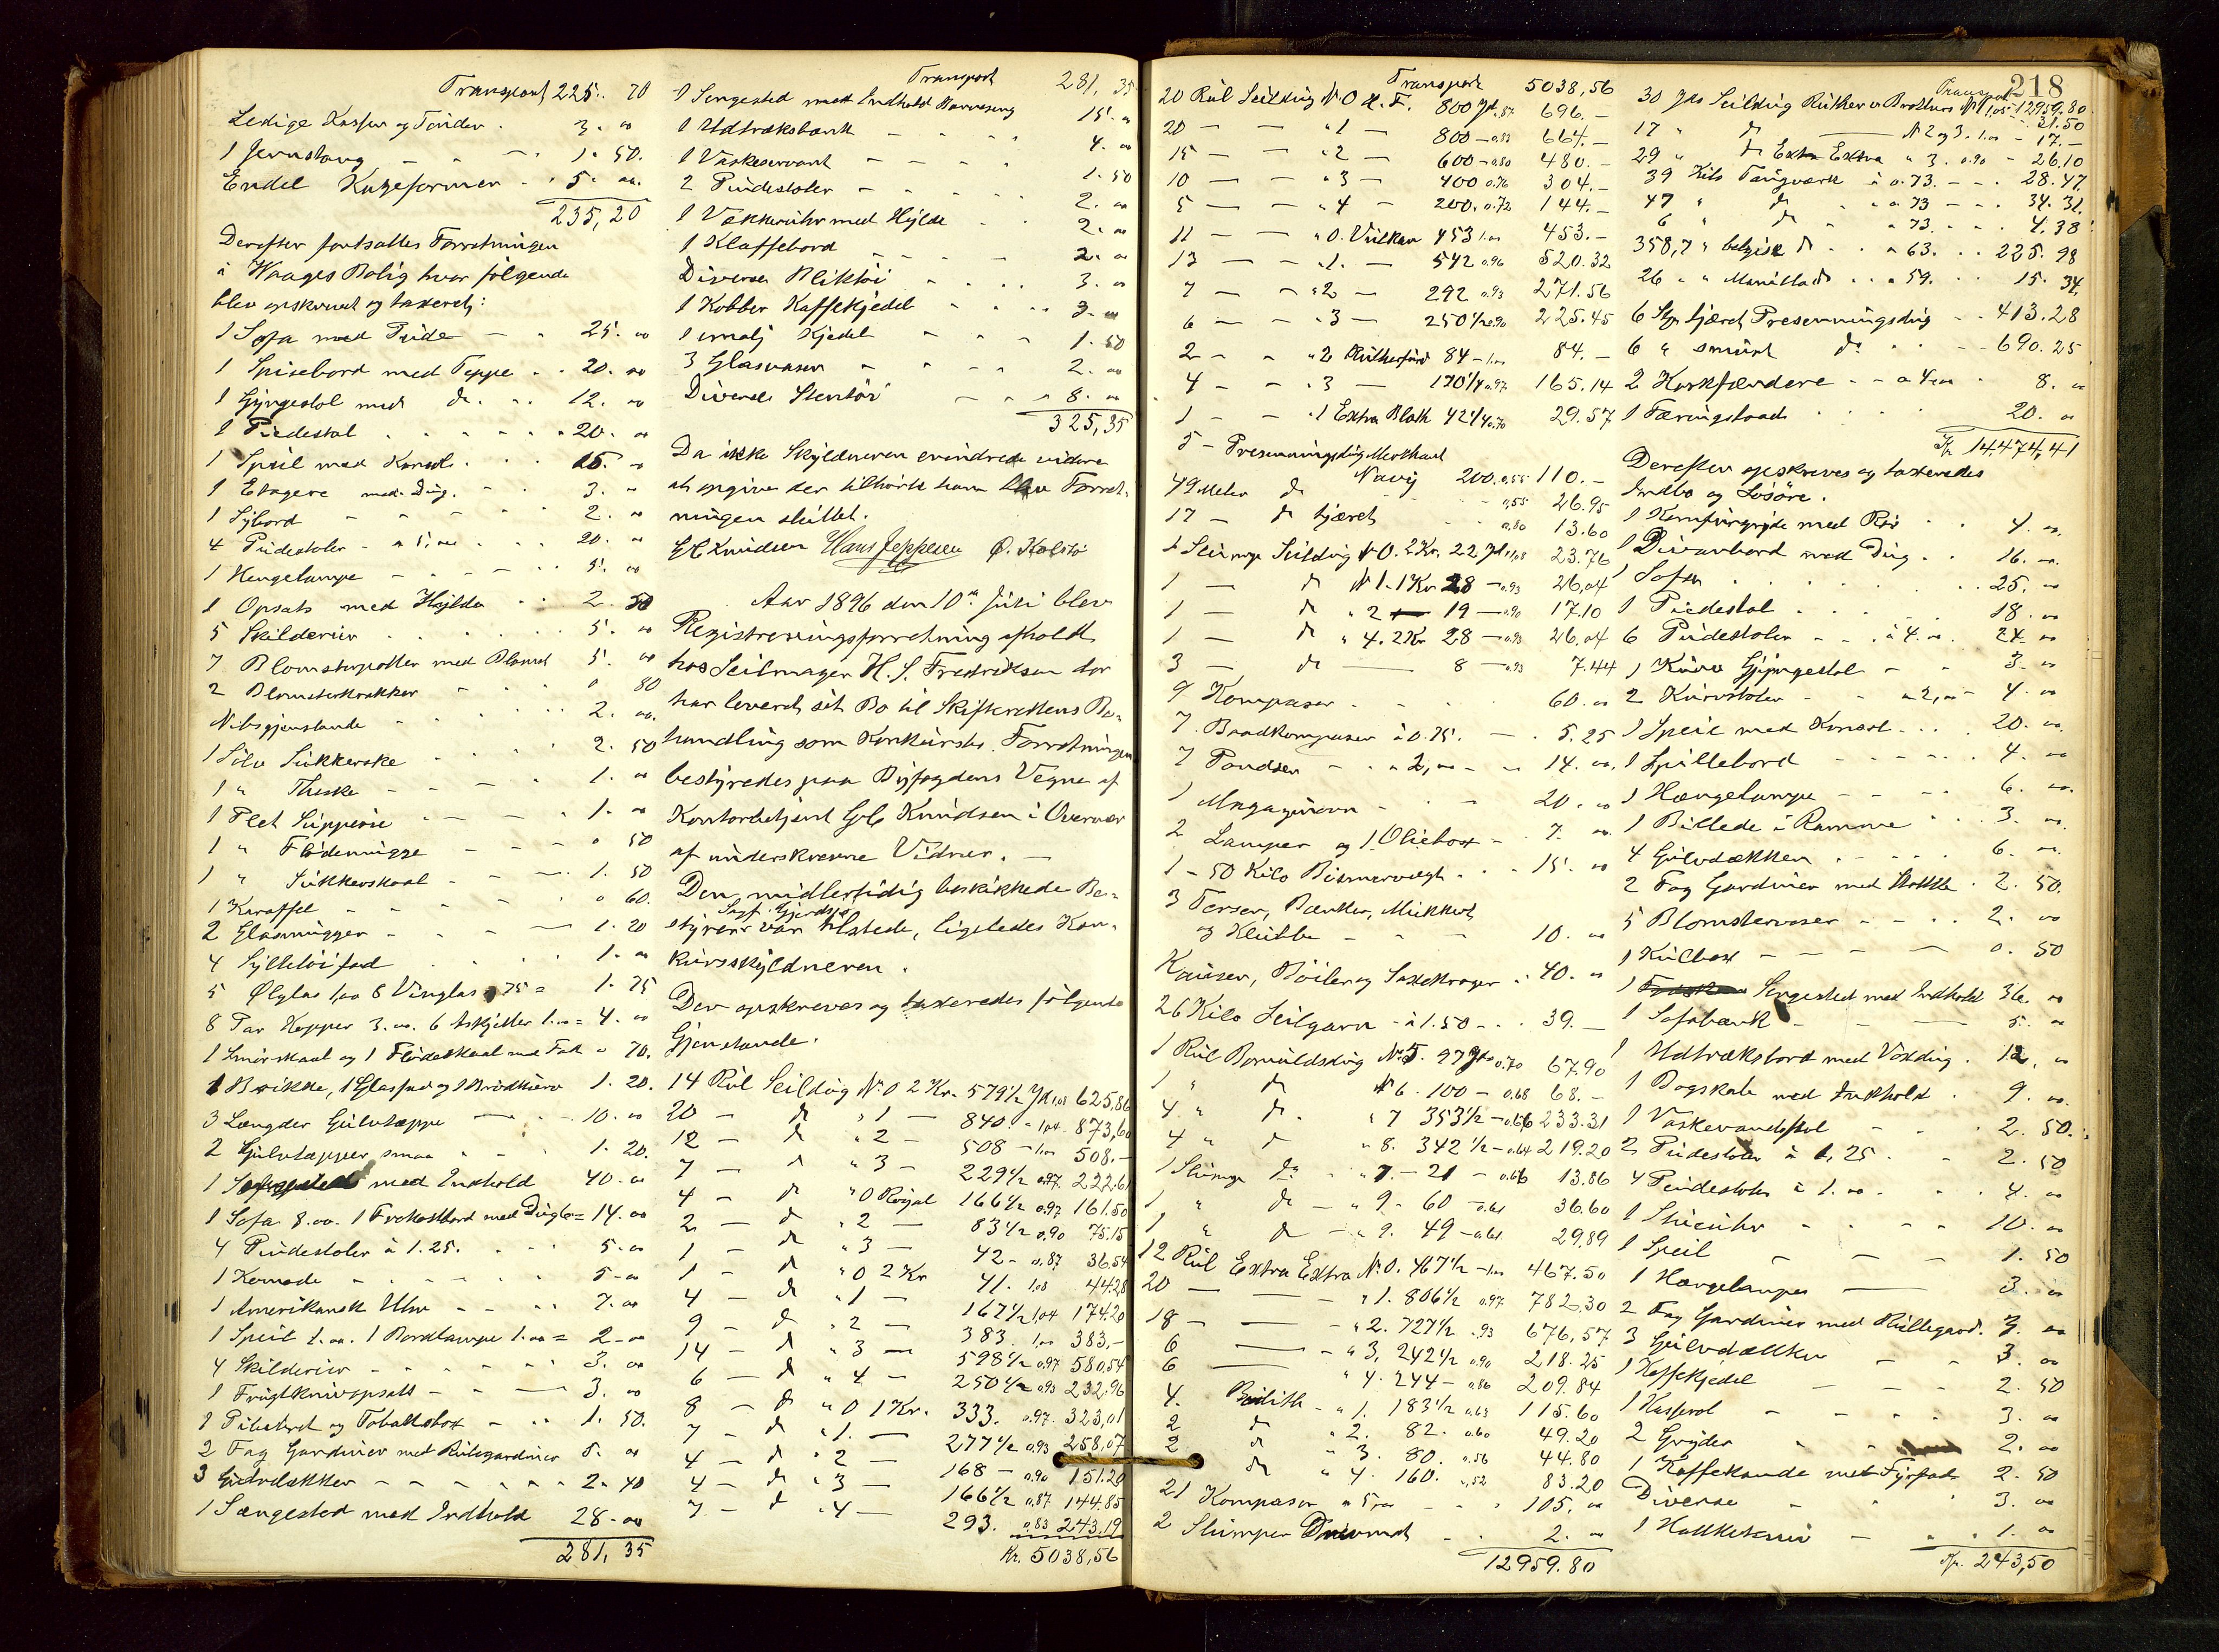 Transport 225. 70
Ledige Kasser og Tønder. 3. 00
1 Jernstang - - - 1. 50.
Endel Kageformer - . 5. 00.
235,20
Derefter fortsattes Forretningen
i Haages Bolig hvor følgende
blev opskrevet og taxeret:
1 Sofa med Pude - . 25. 00
1 Spisebord med Teppe . . 20. 00
1 Gyngestol med do. . . 12. 00
1 Piedestal . . . . . 20. 00
1 Speil med Konsol. . . 15. 00
1 Etagere med Dug. - . 3. 00
1 Sybord - - - . . 2. 00
4 Pindestoler - a 5,00 . . . 20. 00
1 Hengelampe - - - . . 5. 00
1 Opsats med Hylde . . 2. 50
5 Skilderier . . . . . . 5. 00
7 Blomsterpotter med Blomst 5. 00
2 Blomsterkrakker - - . 0 80
Nibsgjenstande - . . . . 2. 00.
1 Sølv Sukkerske . . . 2. 50
1 " Theske - - - . 1. 00
1 Plet Suppeøse - - . 1. 00
1 " Flødemugge - - - 0 50
1 " Sukkerskaal - - . 1. 50
1 Karaffel - - - . . 0 60.
2 Glasmugger - . . - 1. 20
4 Syltetøifad . . . . 1. 00
5 Ølglas 1,00 8 Vinglas 75 = 1. 75
8 Par Kopper 3.00. 6 Askjetter 1.00 = 4. 00
1 Smørskaal og 1 Flødeskaal med Fad 0 70.
1 Brikke, 1 Glasfad og 1 Brødkurv 1. 20.
3 Længder Gulvtæppe - . 10. 00
2 Gulvtæpper, smaa . . . 1. 20.
1 med Indhold 40. 00
1 Sofa 8.00. 1 Frokostbord med Dug 6 = 14. 00
4 Pindestoler à 1.25. . . . 5. 00
1 Komode - - - - . . 5-00
1 Amerikansk Uhr - - . . 7. 00
1 Speil 1.00. 1 Bordlampe 1.00 = 2-00
4 Skilderier - - - - - . 3. 00
1 Frugtknivopsats - - - 3. 00
1 Pibebret og Tobaksbox - . . 1. 50.
2 Fag Gardiner med Rulegardiner 5. 00
3 Gulvdækker - - - . . . 2. 40
1 Sængested med Indhold 28-00
281, 35
Transport 281, 35
1 Sengested med Indhold Barneseng 15. 00
1 Udtræksbænk - - . . 4. 00
1 Vaskeservant - - - - 1. 50
2 Pindestoler - - . . 2. 00
1 Vækkeruhr med Hylde . . 2. 00
1 Klaffebord - - - - - 2. 00
Diverse Bliktøi . . . . 3. 00
1 Kobber Kaffekjedel - . . . 3. 00
1 emalj Kjedel - . . . 1. 50
3 Glasvaser - - . . 2. 00
Diverse Stentøi - - . 8. 00
325,35
Da ikke Skyldneren erindrede videre
at opgive der tilhørte ham blev Forret-
ningen sluttet.
G Knudsen Hans Jeppesen O. Kolstø
Aar 1896 den 10de Juli blev
Registreringsforretning afholdt
hos Seilmager H. S. Fredriksen der
har leveret sit Bo til Skifterettens Be-
handling som Konkursbo. Forretningen
bestyredes paa Byfogdens Vegne af
Kontorbetjent G Knudsen i Overvær
af underskrevne Vidner. -
Den midlertidig beskikkede Be-
Sagf. Gjerdsjø
styrer var tilstede, ligeledes Kon-
kursskyldneren.
Der opskreves og taxeredes følgende
Gjenstande.
14 Rul Seildug No 0 2 Kr. 579 1/2 Yd 1,08 625,86
20 - do " 1 - 840. - 1,04 873,60
12 - do " 2 - 508 - 1,00 508.-
7 - do " 3 - 229 1/2 0.97. 222.61
4 - do " 0 Royal 166 1/2 0,97 161.50
2 - do " 2 - 83 1/2 0,90 75.15
1 - do " 3 - 42 - 0,87 36.54
1 - do " 0 2 Kr 41. 1,08 44.28
4 - do " 1 - 167 1/2 1,04 174.20
9 - do " 2 - 383. 1,00 383,-
14 - do " 3 - 598 1/2 0,97 580,54
6 - do " 4 - 250 1/2 0,93 232,96
8 - do " 0 1 Kr. 333. 0.97. 323,01
7 - do " 1. - 277 1/2 0,93 258,07
4 - do " 2 - 168 - 0.90 151.20
4 - do " 3 - 166 1/2 0.87 144.85
7 - do " 4 - 293. 0,83 243.19
Kr. 5038,56
Transport 5038,56
20 Rul Seildug No 0 E. F. 800 Yd 0.87 696.-
20 - - " 1 - 800 - 0.83 664.-
15 - - " 2 - 600 - 0.80 480.-
10 - - " 3 - 400 0.76 304.-
5 - - " 4 - 200. 0.72 144.-
11 - - " 0. Vulkan 453 1.00 453.-
13 - - " 1. - 542 0.96 520.32
7 - - " 2 - 292 0.93 271.56
6 - - " 3 - 250 1/2 0.90 225.45
2 - - " 2 Rutherford 84 - 1.00 84.-
4 - - " 3 - 170 1/4 0.97. 165.14
1 - - " 1 Extra Blath 42 1/4 0.70 29.57
5 - Presenningdug Merchant
Navy 200. 0.55 110.-
49 Meter do - 0,55 26.95
17 - do tjæret - 0.80 13.60
1 Stump Seildug No 0. 2 Kr. 22 Yd 1,08 23.76
1 - do No 1. 1 Kr 28 - 0.93 26,04
1 - do " 2 19 - 0.90 17.10
1 - do " 4. 2 Kr 28 - 0.93 26.04
3 - do - 8 - 0.93 7.44
9 Kompaser . - . . 60. 00
7. Baadkompaser à 0.75. - . 5.25
7 Pondser - - a 2,00 - - 14. 00.
1 - . . 20. 00
2 Lamper og 1 Oliebox - . 7. 00
1 - 50 Kilo Bismervægt . . . 15. 00
3 Terser, Bænker, Mukkert
og Klubbe - - - 10. 00
Kauser, Bøiler og Saxekroger . 40. 00
26 Kilo Seilgarn - à 1.50 - . . 39.-
1 Rul Bomuldsdug No 5. 97 Yds 0.70 67.90
1 " do No 6. 100 - 0.68 68.-
4 " do. " 7 353 1/2 - 0.66 233.31
4 " do " 8. 342 1/2 - 0.64 219.20
1 Stump do " 7. - 21 - 0.66 13.86
1 " do - " 9 - 60 - 0.61 36.60
1 " do - " 9. 49 - 0.61 29.89
12 Rul Extra Extra No 0. 467 1/2 - 1.00 467.50
20 - - " 1. 806 1/2 0.97. 782.30
18 - - - " 2. 727 1/2 .93 676,57
6 - - " 3. 242 1/2 0.90 218.25
6 - " 4. 244 - 0.86 209.84
4. - " 1. 183 1/2 0.63 115.60
2 do " 2. 82. 0.60 49.20
2 do " 3. 80. 0.56 44.80
do " 4. 160. 0,52 83.20
21 Kompaser a 5,00 - . . 105. 00
2 Stumper - . 2. 00
12959.80
218
Transport 12959.80
30 Yds Seildug No 1 1.05 31.50
17 " do - No 2 og 3. 1.00 - 17.-
29 " do Extra Extra " 3. 0.90 - 26.10
39 Kilo Taugværk à 0.73. - - . 28.47.
47 " do . . a 73 - - . 34.31.
6 " do . a 73. - . . 4.38
358,7 " belgisk do . . a 63. . . 225.98
26 " " Manilla do . . a 59. . . 15. 34.
6 Styk tjæret Presenningsdug - . 413.28
6 " smurt do . . - 690.25
2 Korkfendere - - a 4.00 . 8. 00
1 Færingsbaad . . . . 20. 00
Kr. 14,474,41
Derefter opskreves og taxeredes
Indbo og Løsøre.
1 Komfurgryde med Rør . . 4. 00.
1 Divanbord med Dug . . 16. 00.
1 Sofa . . . . . 25. 00
1 Piedestal . . . . . 18. 00
6 Pindestoler - - . à 4. 00. 24. 00
1 Kurv Gjyngestol - - 3. 00
2 Kurvstoler - - a 2,00 - 4. 00
1 Speil med Konsol . . . 20. 00.
1 Spillebord - - - - . 4. 00
1 Hængelampe - - - - 6. 00.
1 Billede i Ramme . . . 3. 00.
4 Gulvdækken . - - . . 6. 00.
2 Fag Gardiner med . 2. 50.
5 Blomstervaser - - . . 2. 00
1 Kulbox - - - - 0. 50
1 Sengested med Indhold 36. 00
1 Sofabænk - - - 5. 00
1 Udtræksbord med Voxdug . 12. 00
1 Bogskab med Indhold . 9. 00.
1 Vaskevandstol - - - 2. 50.
2 Pindestoler à 1,25 . - 2. 50
4 Pindestoler à 1.00 . . . 4. 00
1 Stueuhr - . . . 10. 00
1 Speil - - - 1. 50
1 Hængelampe - 3. 00
2 Fag Gardiner med Rullegard. 3. 00
3 Gulvdække - - 3. 00
1 Kaffekjedel - - - 2. 50
1 Kasserol - . . . 3. 00
2 Gryder . . 2. 00
1 Kaffekande med Fyrfad 2. 50
Diverse - . . 3. 00
1 Hakkekniv - . . 1. 00
Kr. 243,50